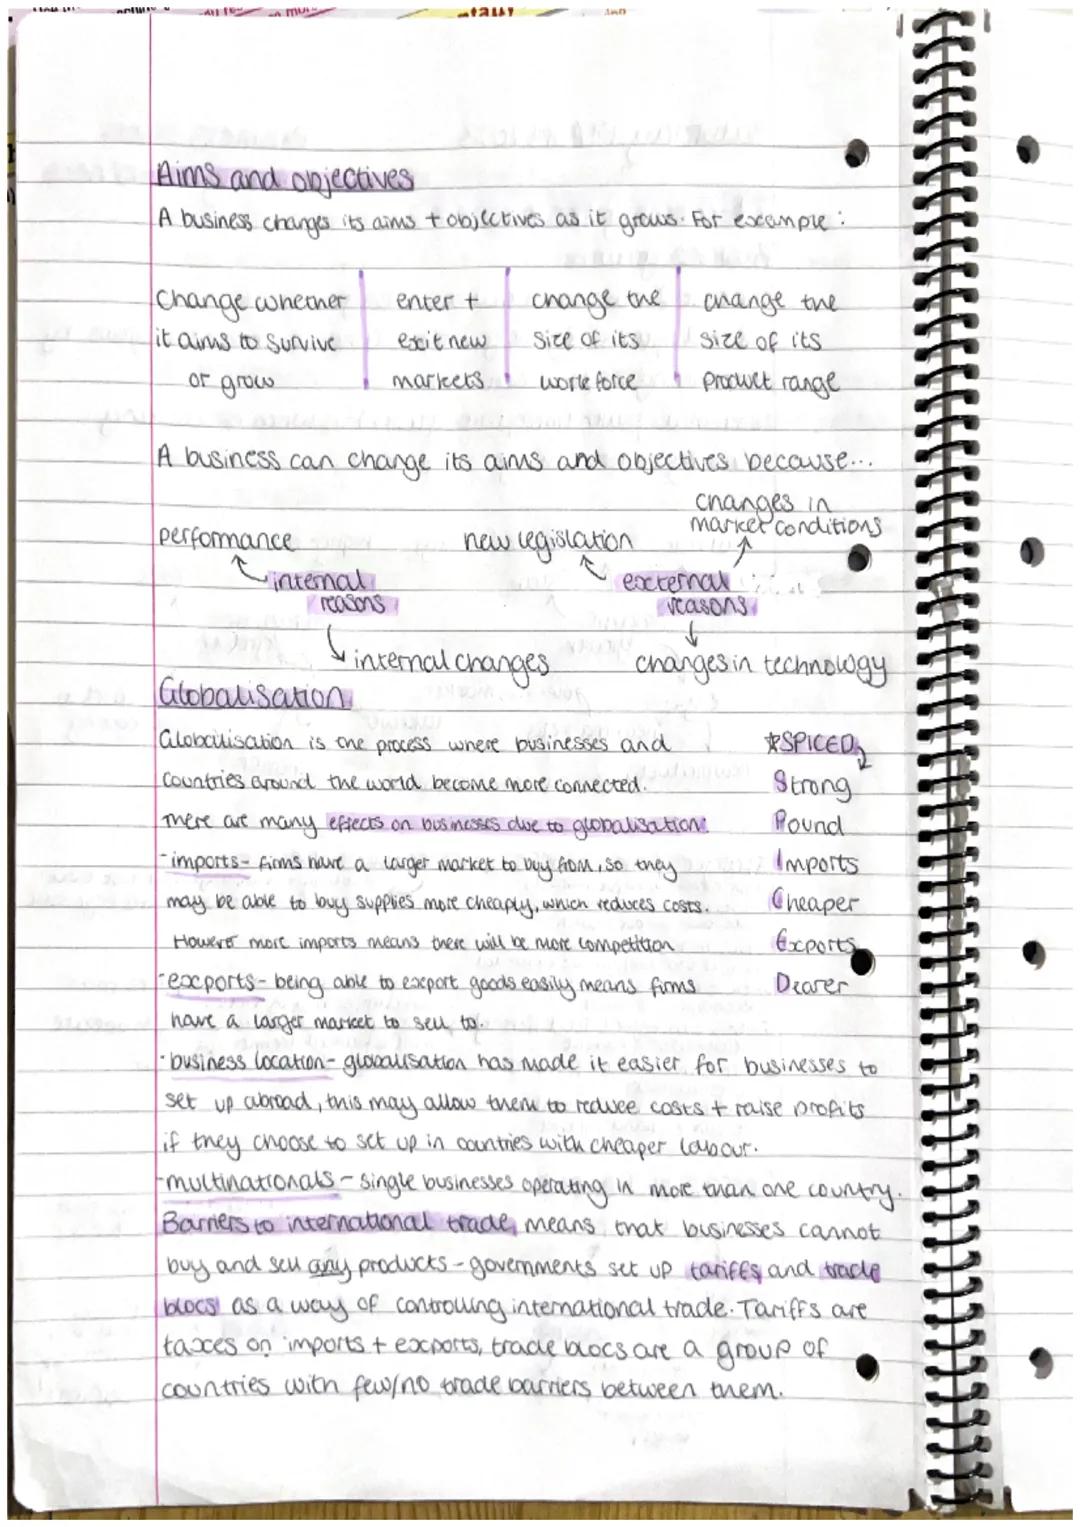 Aims and objectives
A business changes its aims + objectives as it grows. For example:
Change whether
it aims to survive
or grow
enter +
exit new
markets
change the
size of its
workforce
change the
size of its
product range
A business can change its aims and objectives because...
performance
internal
reasons
internal changes
new legislation
changes in
market conditions
external
reasons
changes in technology
Globalisation
Globalisation is the process where businesses and
countries around the world become more connected.
There are many effects on businesses due to globalisation:
-imports- firms have a larger market to buy from, so they
may be able to buy supplies more cheaply, which reduces costs.
However more imports means there will be more competition
-exports- being able to export goods easily means firms
have a larger market to sell to.
-business location- globalisation has made it easier for businesses to
set up abroad, this may allow them to reduce costs + raise profits
if they choose to set up in countries with cheaper labour.
-multinationals - single businesses operating in more than one country.
Barriers to international trade, means that businesses cannot
buy and sell any products - governments set up tariffs and trade
blocs as a way of controlling international trade. Tariffs are
taxes on imports + exports, trade blocs are a group of
countries with few/no trade barriers between them.
*SPICED
Strong
Pound
Imports
Cheaper
Exports
Dearer